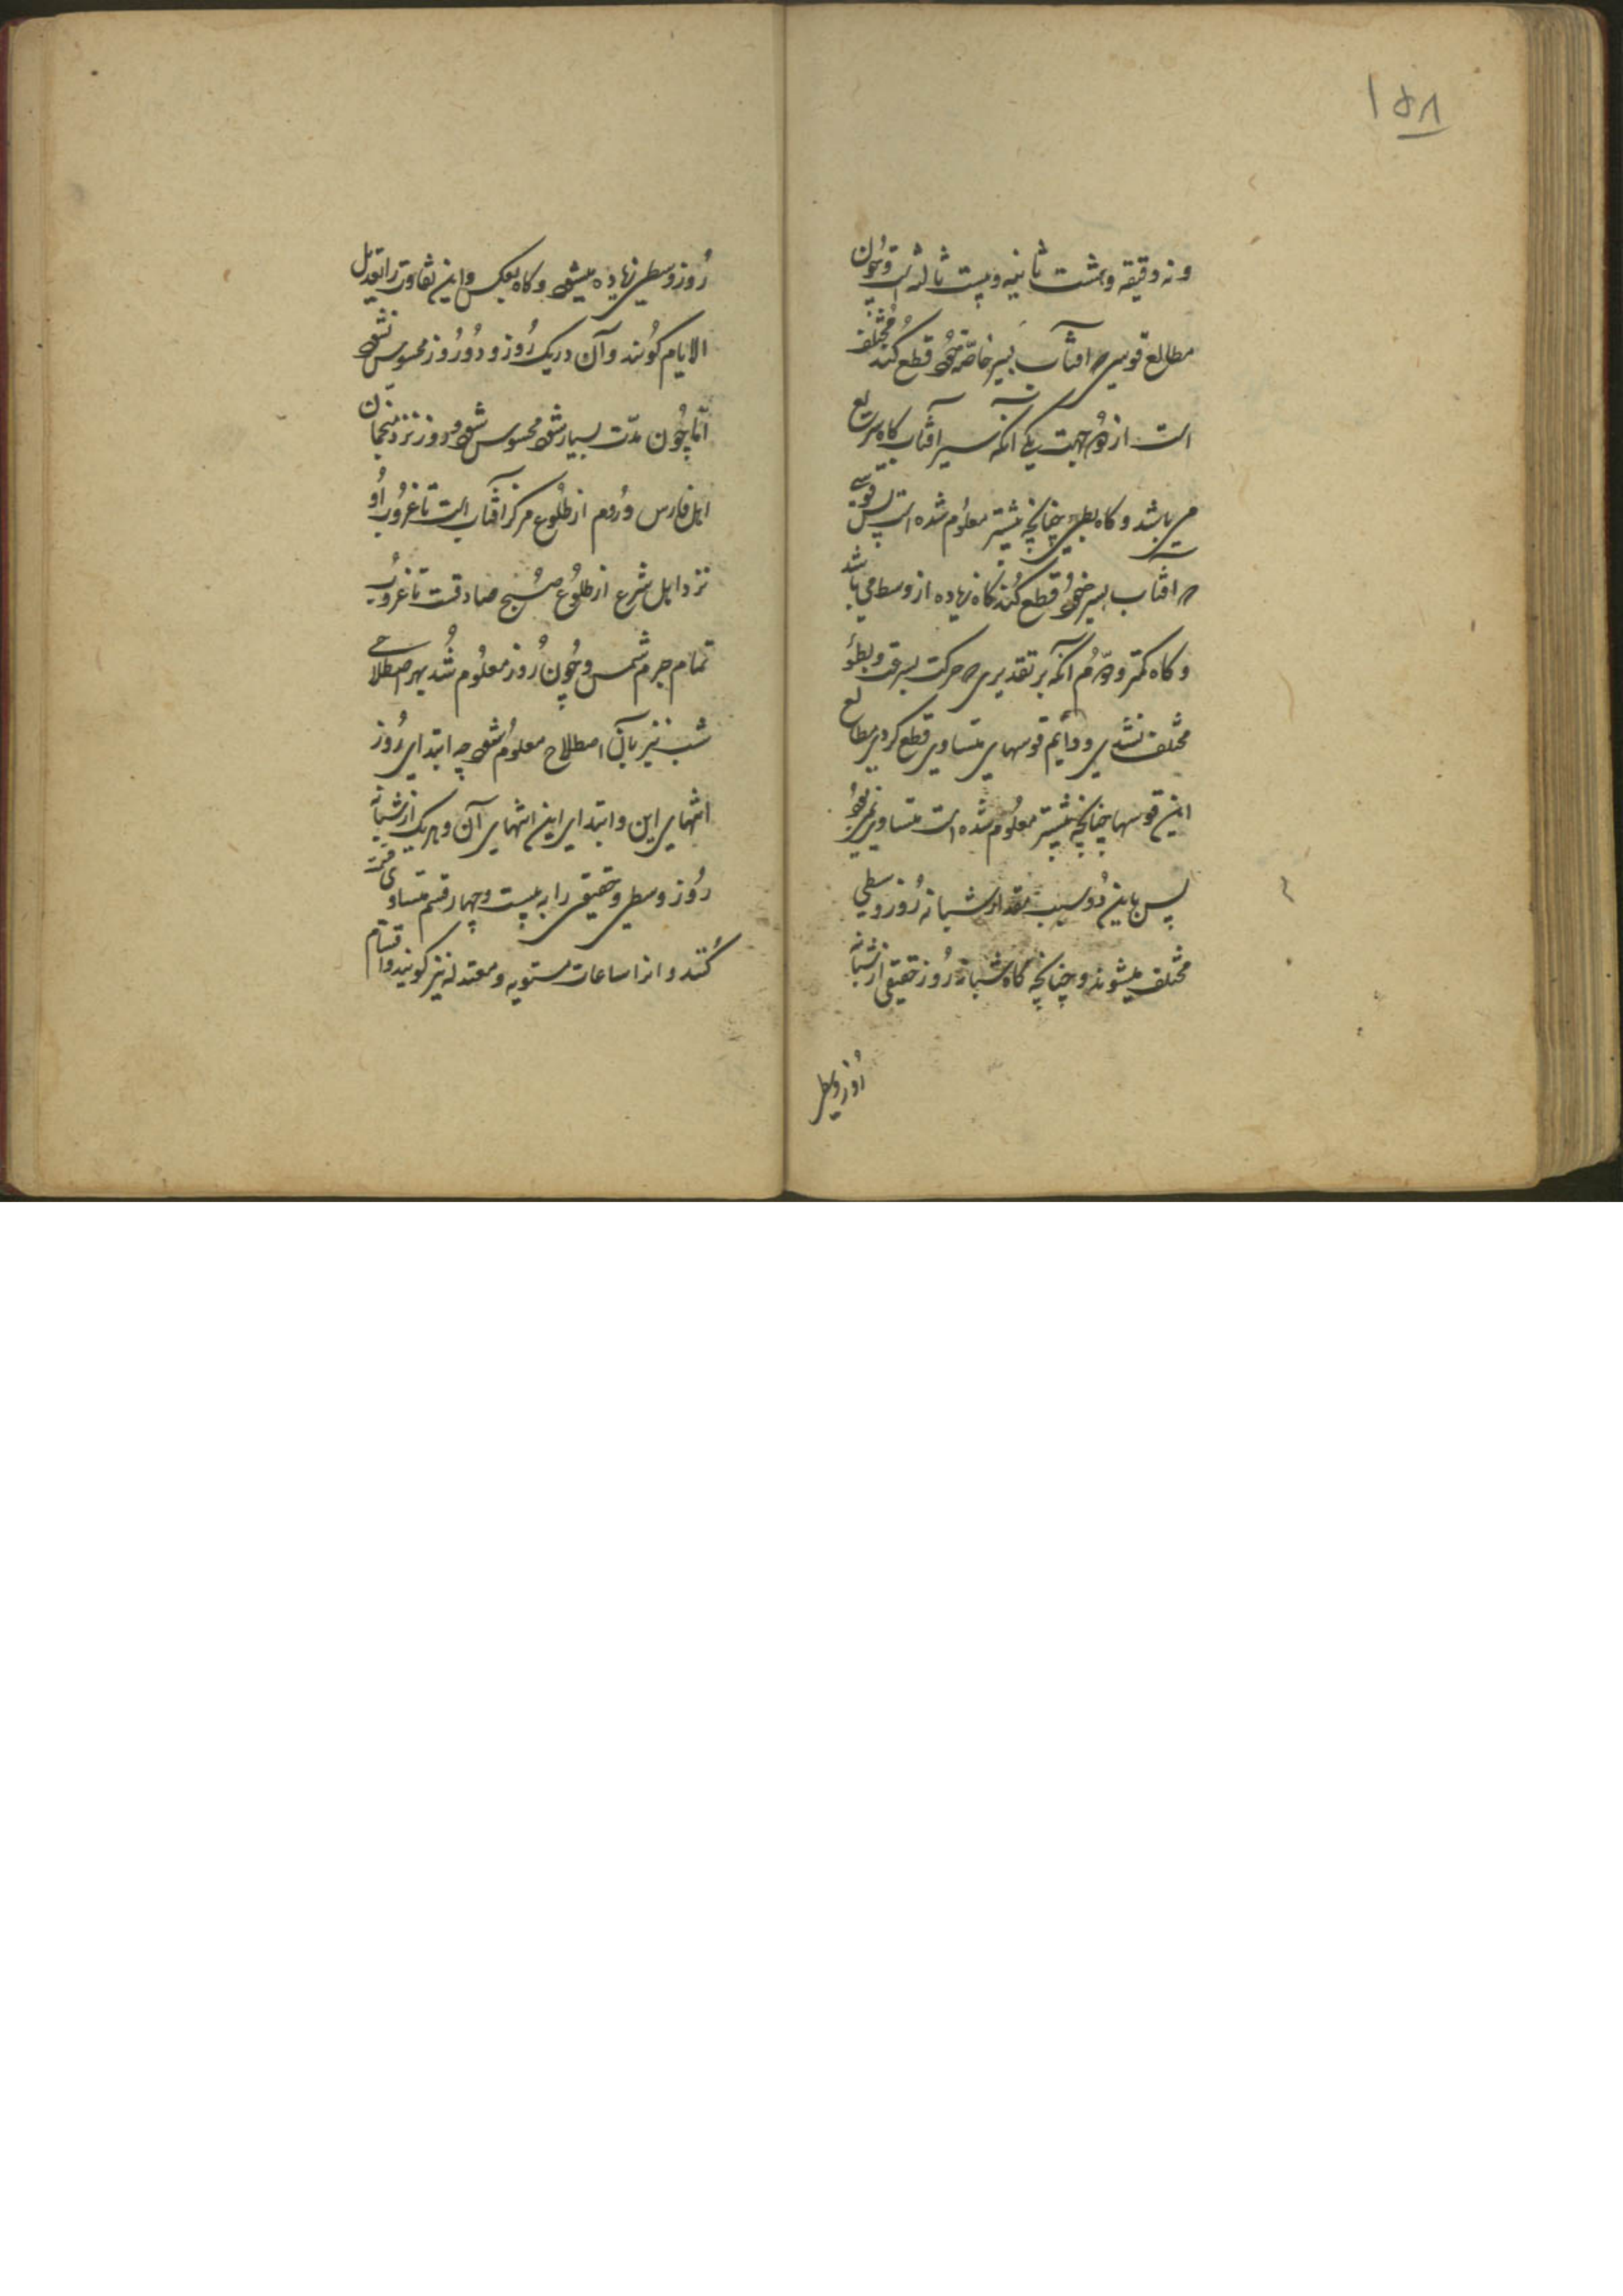 ۱۵۸
و نه دقیقه و هشت ثانیه و بیست ثالثه است و چون
مطالع قوسی که آفتاب بسیر خاصه خود قطع کند مختلف
است از دو جهت یکی آنکه سیر آفتاب گاه سریع
می باشد و گاه بطی چنانچه پیشتر معلوم شده است پس قوسی
که آفتاب بسیر خود قطع کند گاه زیاده از وسط می باشد
و گاه کمتر و دوم آنکه بر تقدیری که حرکت بسرعت و بطؤ
مختلف نشدی و دایم قوسهای متساوی قطع کردی مطالع
این قوسها چنانچه پیشتر معلوم شده است متساوی نمی بود
پس باین دو سبب مقدار شبانه روز وسطی
مختلف میشوند و چنانچه گاه شبانه روز حقیقی از شبانه
روز وسطی
روز وسطی زیاده میشود و گاه بعکس و این تفاوت را تعدیل
الایام گویند و آن در یک روز و دو روز محسوس نشود
اما چون مدت بسیار شود محسوس شود و روز نزد منجمان
اهل فارس و روم از طلوع مرکز آفتاب است تا غروب او
نزد اهل شرع از طلوع صبح صادقست تا غروب
تمام جرم شمس و چون روز معلوم شد بهر اصطلاحی
شب نیز بآن اصطلاح معلوم شود چه ابتدای روز
انتهای این و ابتدای این انتهای آن و هر یک از شبانه
روز وسطی و حقیقی را به بیست و چهار قسم متساوی قسمت
کنند و انرا ساعات مستویه و معتدله نیز گویند و اقسام